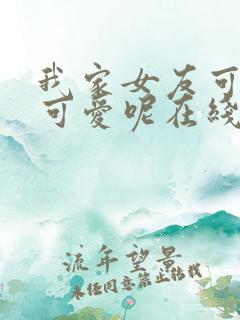 我家女友可
可爱呢在线
流年望景
未经同意禁止转载